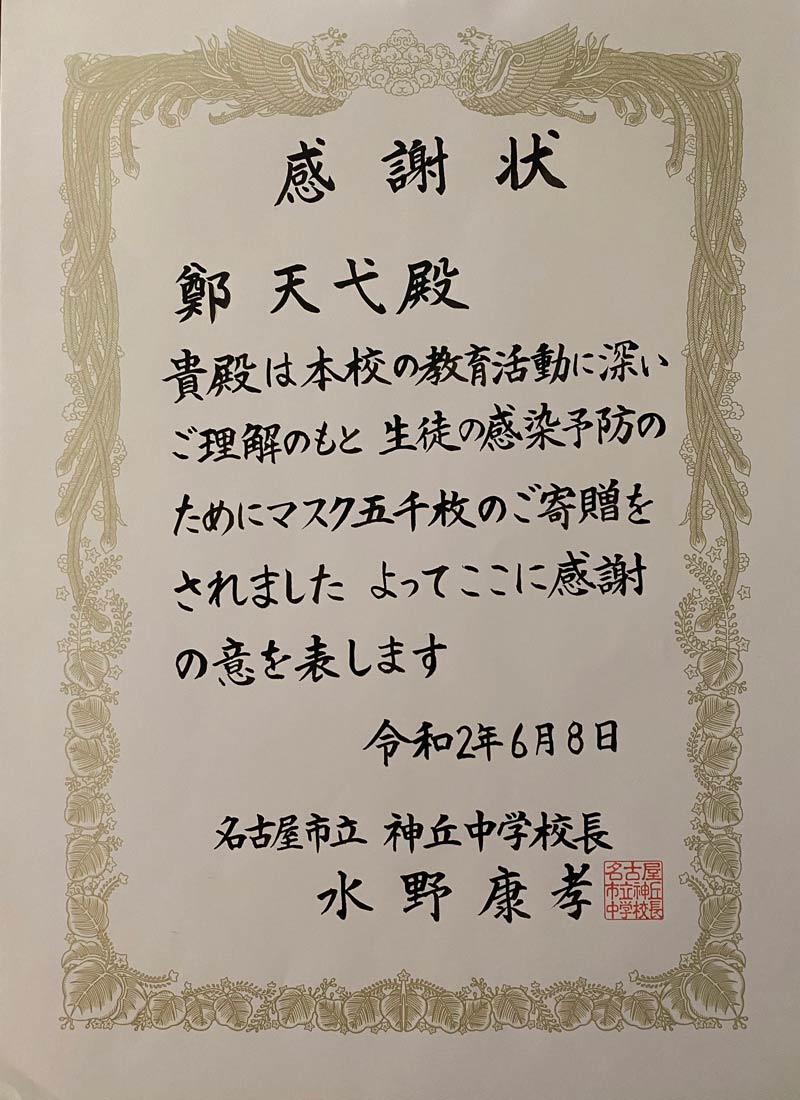 感謝状
鄭 天弋殿
貴殿は本校の教育活動に深い
ご理解のもと 生徒の感染予防の
ためにマスク五千枚のご寄贈を
されました よってここに感謝
の意を表します
令和2年6月8日
名古屋市立 神丘中学校長
水野康孝
名古屋
市立神丘
中学校長